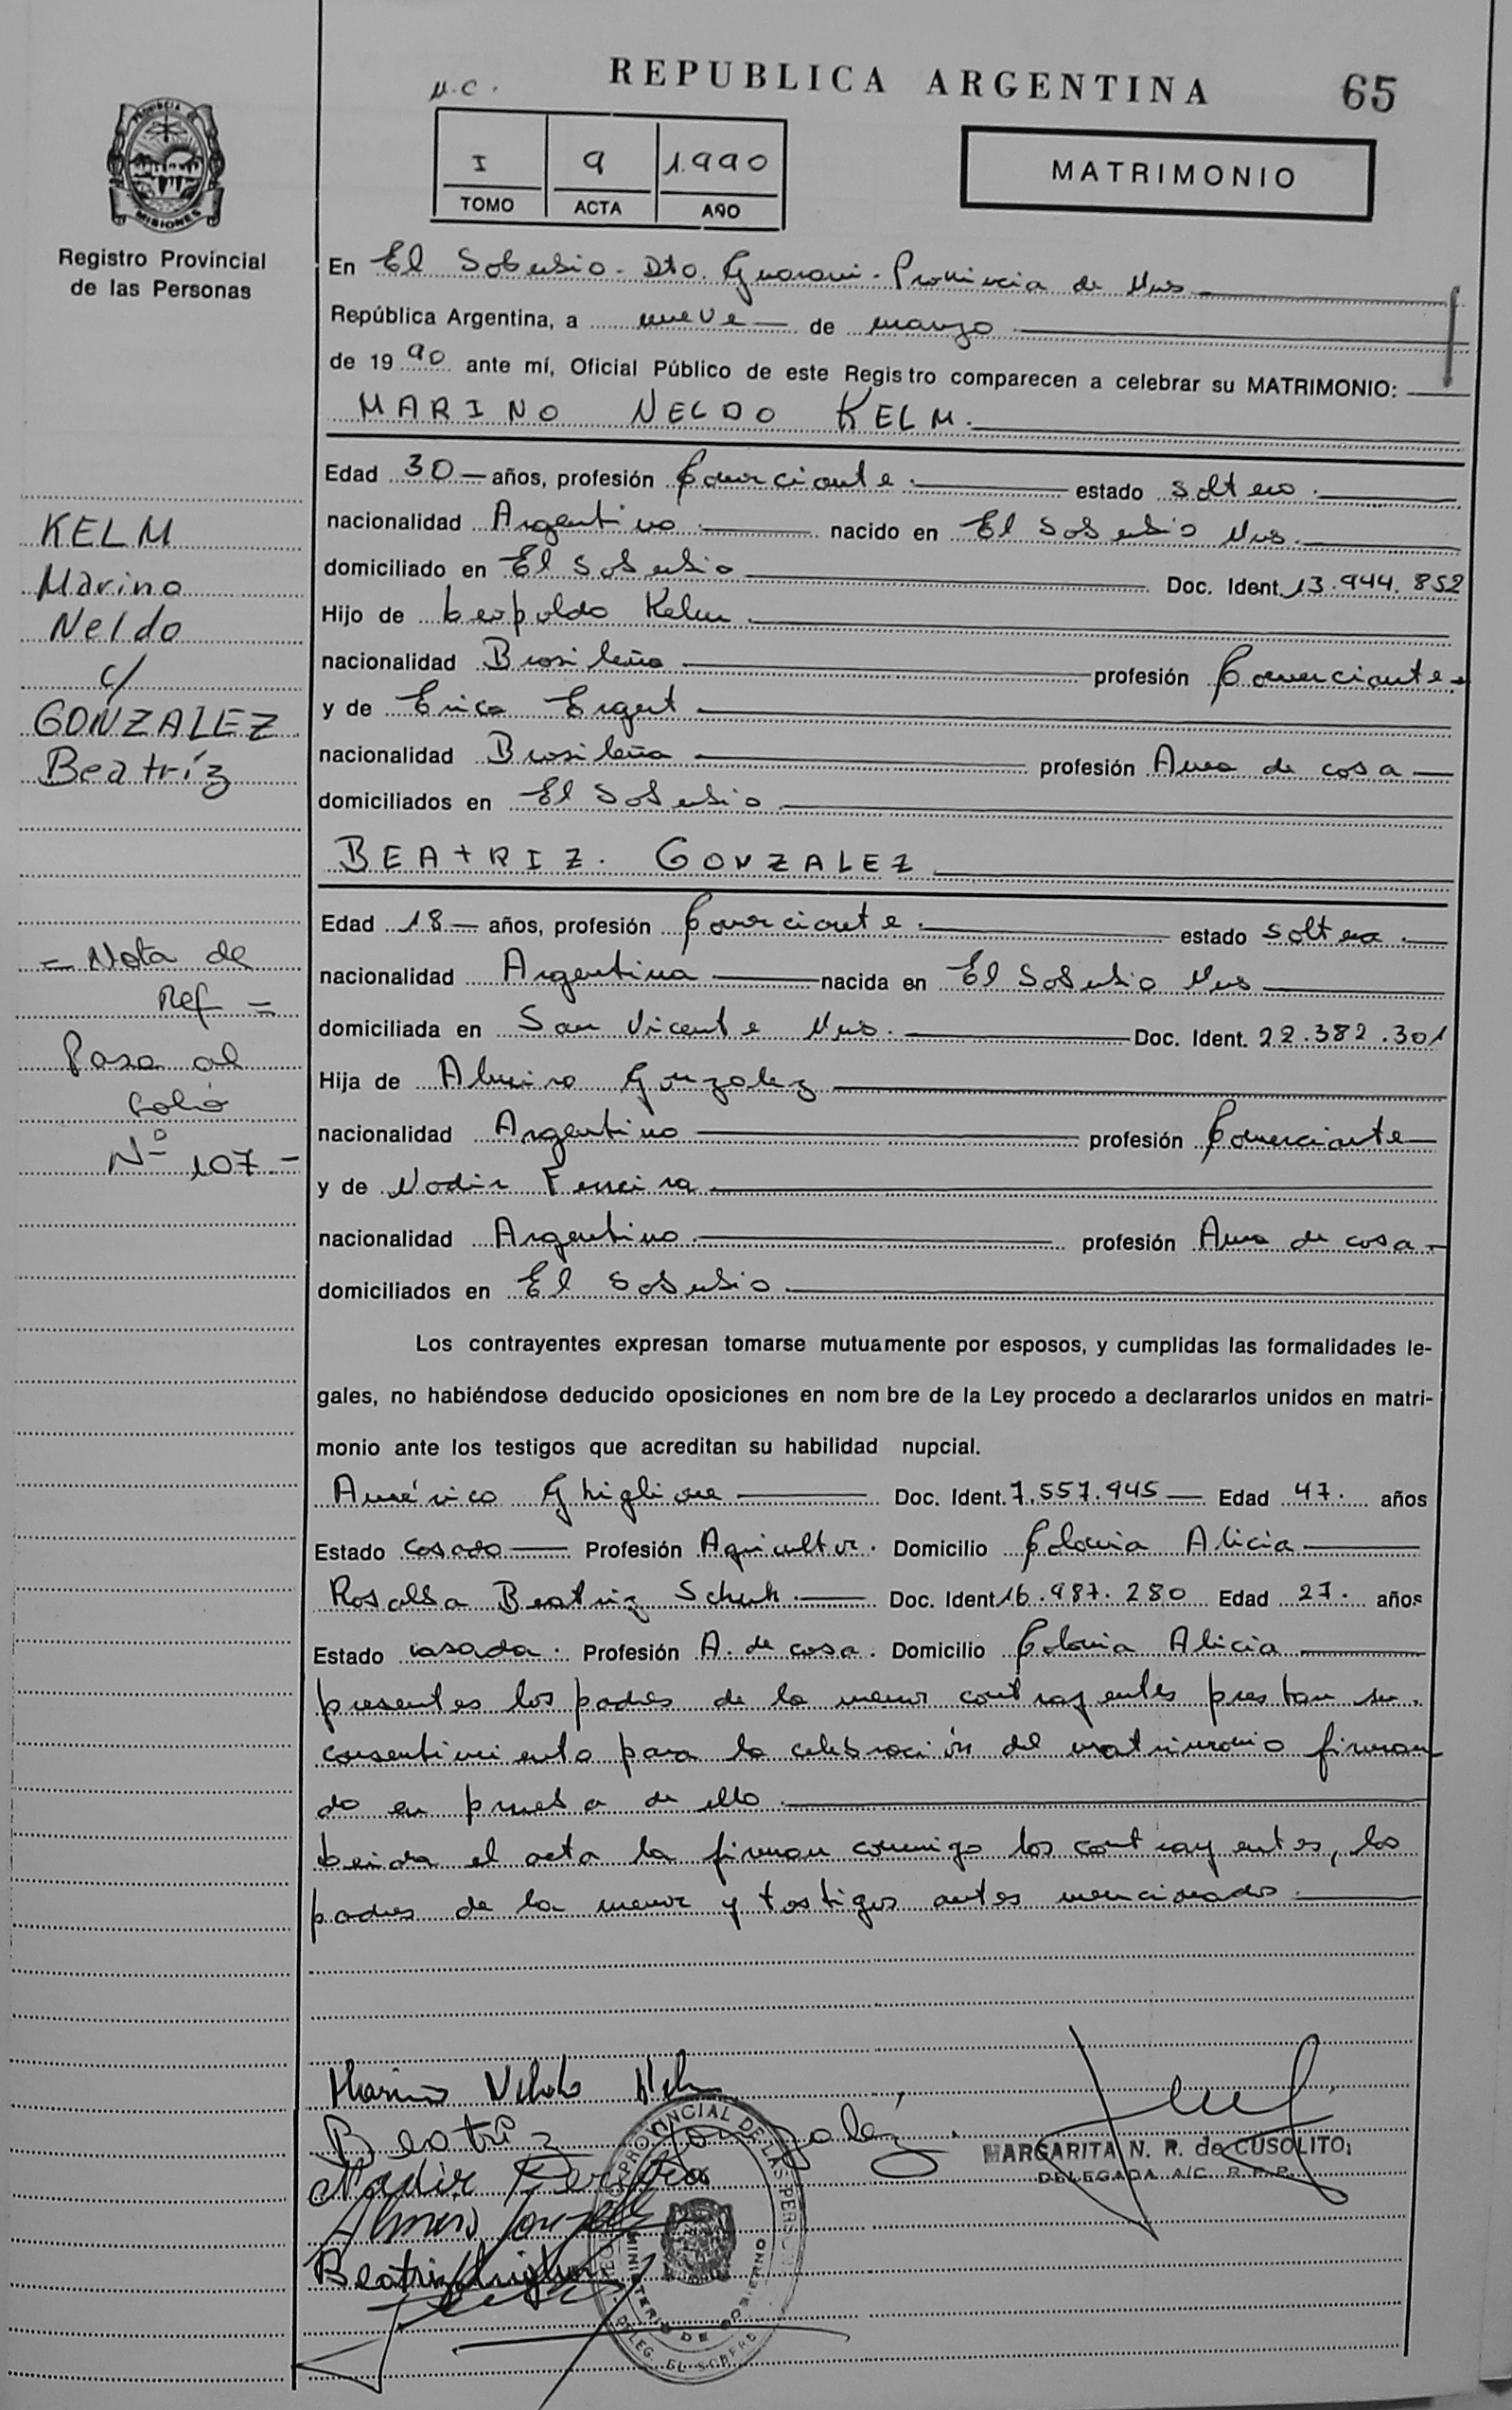 REPUBLICA ARGENTINA
65
M.C.
I 9 1.990
TOMO ACTA AÑO
MATRIMONIO
PROVINCIA DE
MISIONES
Registro Provincial
de las Personas
En El Soberbio - Dto. Guaraní - Provincia de Mnes
República Argentina, a nueve de marzo
de 1990 ante mí, Oficial Público de este Registro comparecen a celebrar su MATRIMONIO:
MARINO NELDO KELM.
Edad 30 años, profesión Comerciante. estado soltero.
nacionalidad Argentino. nacido en El Soberbio Mnes.
domiciliado en El Soberbio Doc. Ident. 13.944.852
Hijo de Leopoldo Kelm
nacionalidad Brasileña profesión Comerciante
y de Erica Ergert
nacionalidad Brasileña profesión Ama de casa
domiciliados en El Soberbio
BEATRIZ. GONZALEZ
Edad 18 años, profesión Comerciante. estado soltera.
nacionalidad Argentina nacida en El Soberbio Mnes
domiciliada en San Vicente Mnes. Doc. Ident. 22.382.301
Hija de Almiro Gonzalez
nacionalidad Argentino profesión Comerciante
y de Nadir Ferreira
nacionalidad Argentino profesión Ama de casa
domiciliados en El Soberbio
Los contrayentes expresan tomarse mutuamente por esposos, y cumplidas las formalidades le-
gales, no habiéndose deducido oposiciones en nom bre de la Ley procedo a declararlos unidos en matri-
monio ante los testigos que acreditan su habilidad nupcial.
Américo Ghiglione Doc. Ident. 7.557.945 Edad 47. años
Estado casado Profesión Agricultor. Domicilio Colonia Alicia
Rosalba Beatriz Schuh. Doc. Ident 16.987.280 Edad 27. años
Estado casada. Profesión A. de casa. Domicilio Colonia Alicia
presentes los padres de la menor contrayentes prestan su
consentimiento para la celebración del matrimonio firman
do en prueba de ello.
Leida el acta la firman conmigo los contrayentes, los
padres de la menor y testigos antes mencionados.
KELM
Marino
Neldo
c/
GONZALEZ
Beatríz
= Nota de
Ref =
Pasa al
folio
Nº 107 -
Marino Neldo Kelm
Beatriz Gonzalez
Nadir Ferreira
Almiro Gonzalez
Beatriz
MARGARITA N. R. de CUSOLITO
DELEGADA A/C R.P.P.
PROVINCIAL DE LAS PERSONAS
MINISTERIO DE GOBIERNO
DELEG. EL SOBERBIO